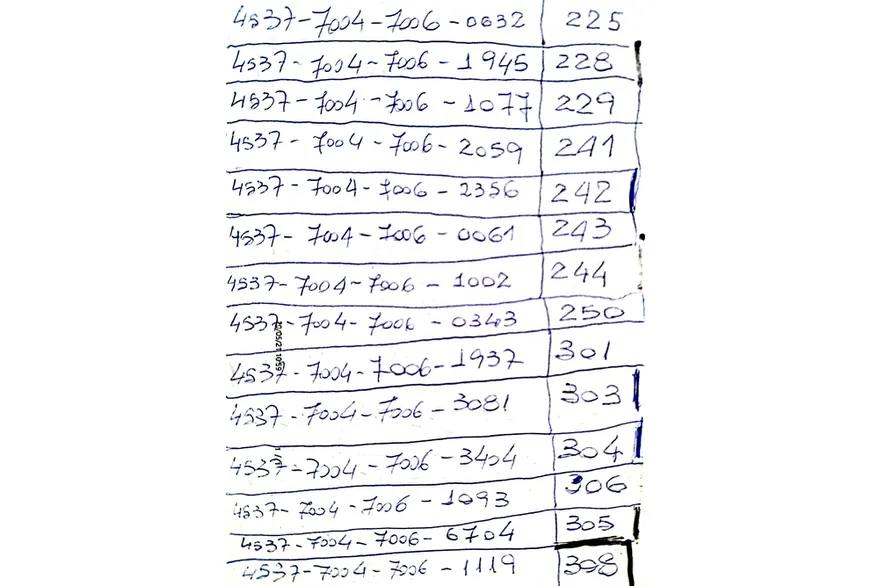 4537-7004-7006-0632 225
4537-7004-7006-1945 228
4537-7004-7006-1077 229
4537-7004-7006-2059 241
4537-7004-7006-2356 242
4537-7004-7006-0061 243
4537-7004-7006-1002 244
4537-7004-7006-0343 250
4537-7004-7006-1937 301
4537-7004-7006-3081 303
4537-7004-7006-3404 304
4537-7004-7006-1093 306
4537-7004-7006-6704 305
4537-7004-7006-1119 308